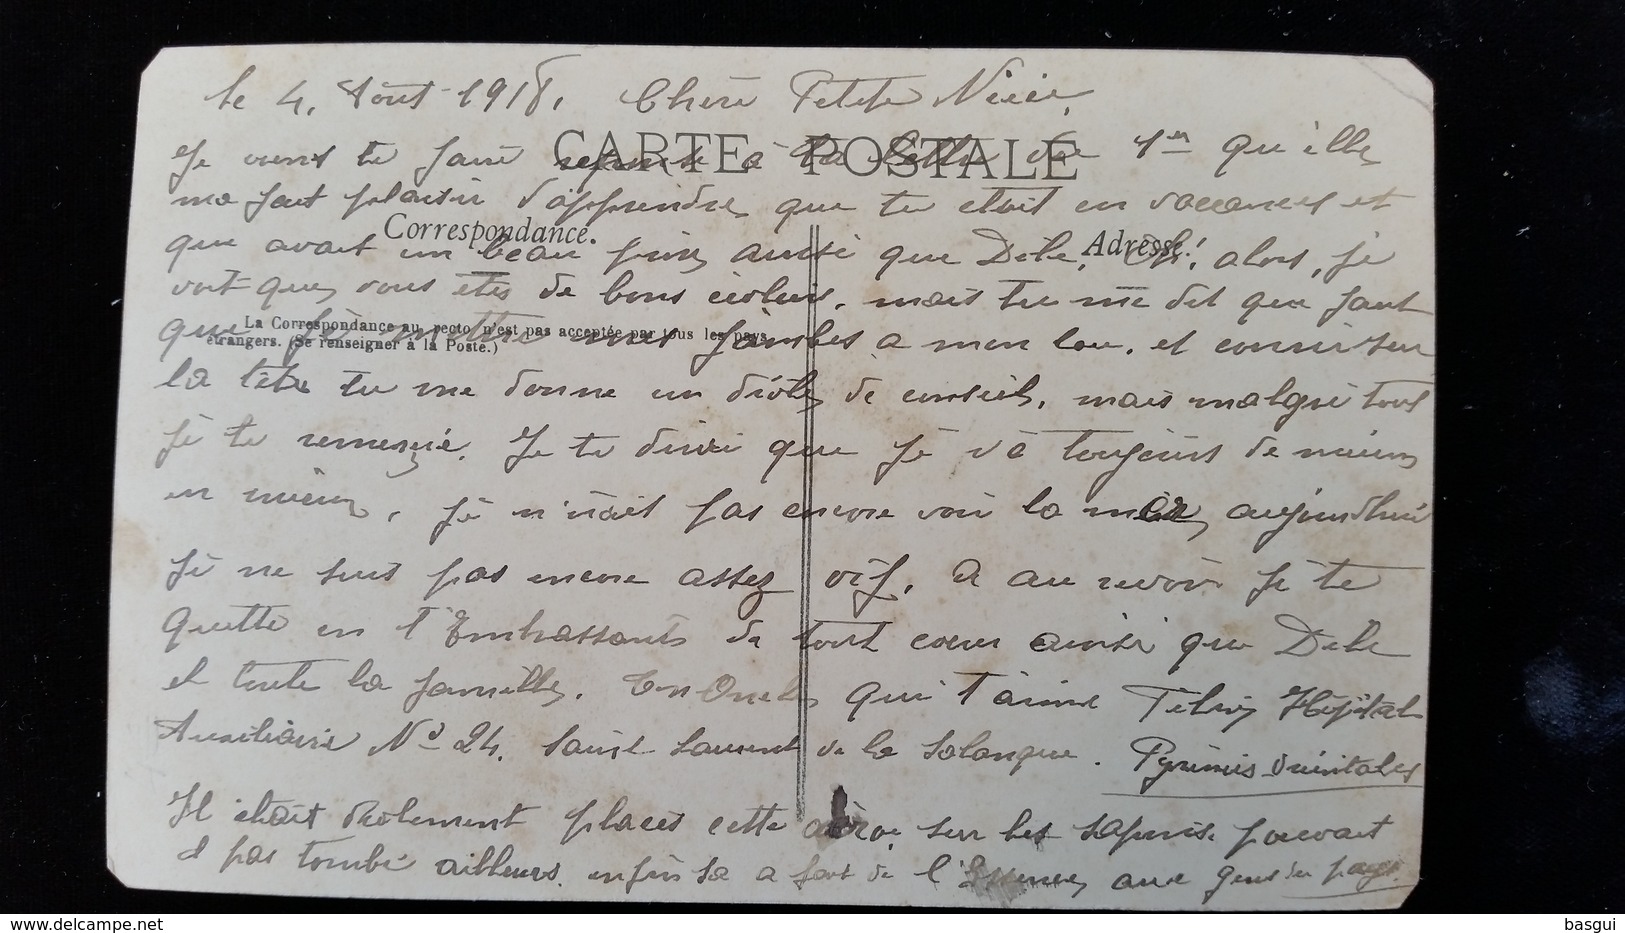 le 4. Aout 1918. Chère Petite Nièce,
CARTE POSTALE
Je vient te faire reponse à ta lettre du 1er qu'elle
ma fait plaisir d'apprendre que tu etait en vacances et
Correspondance.
Adresse
que avait un beau prix aussi que Dèle, Oh! alors, je
voit que vous êtes de bons écoliers. mais tu me dit que faut
La Correspondance au recto n'est pas acceptée par tous les pays
étrangers. (Se renseigner à la Poste.)
que je mettre mes jambes a mon cou. et courir sur
la tête tu me donne un drôle de conseil. mais malgré tout
je te remercie. Je te dirai que je va toujours de mieux
en mieux, je n'irait pas encore voir la mer, aujourdhui
je ne suis pas encore assez vif. a au revoir je te
quitte en t'Embrassant de tout coeur ainsi que Dèle
et toute la famille. Ton Oncle qui t'aime Hôpital
Auxiliaire No 24. Saint Laurent de la Salanque. Pyrénés Orientales
Il était drolement placés cette aéro, sur les sapins. pouvait
pas tombé ailleurs. enfin sa a fait de l' aux gens du pays.
basgui